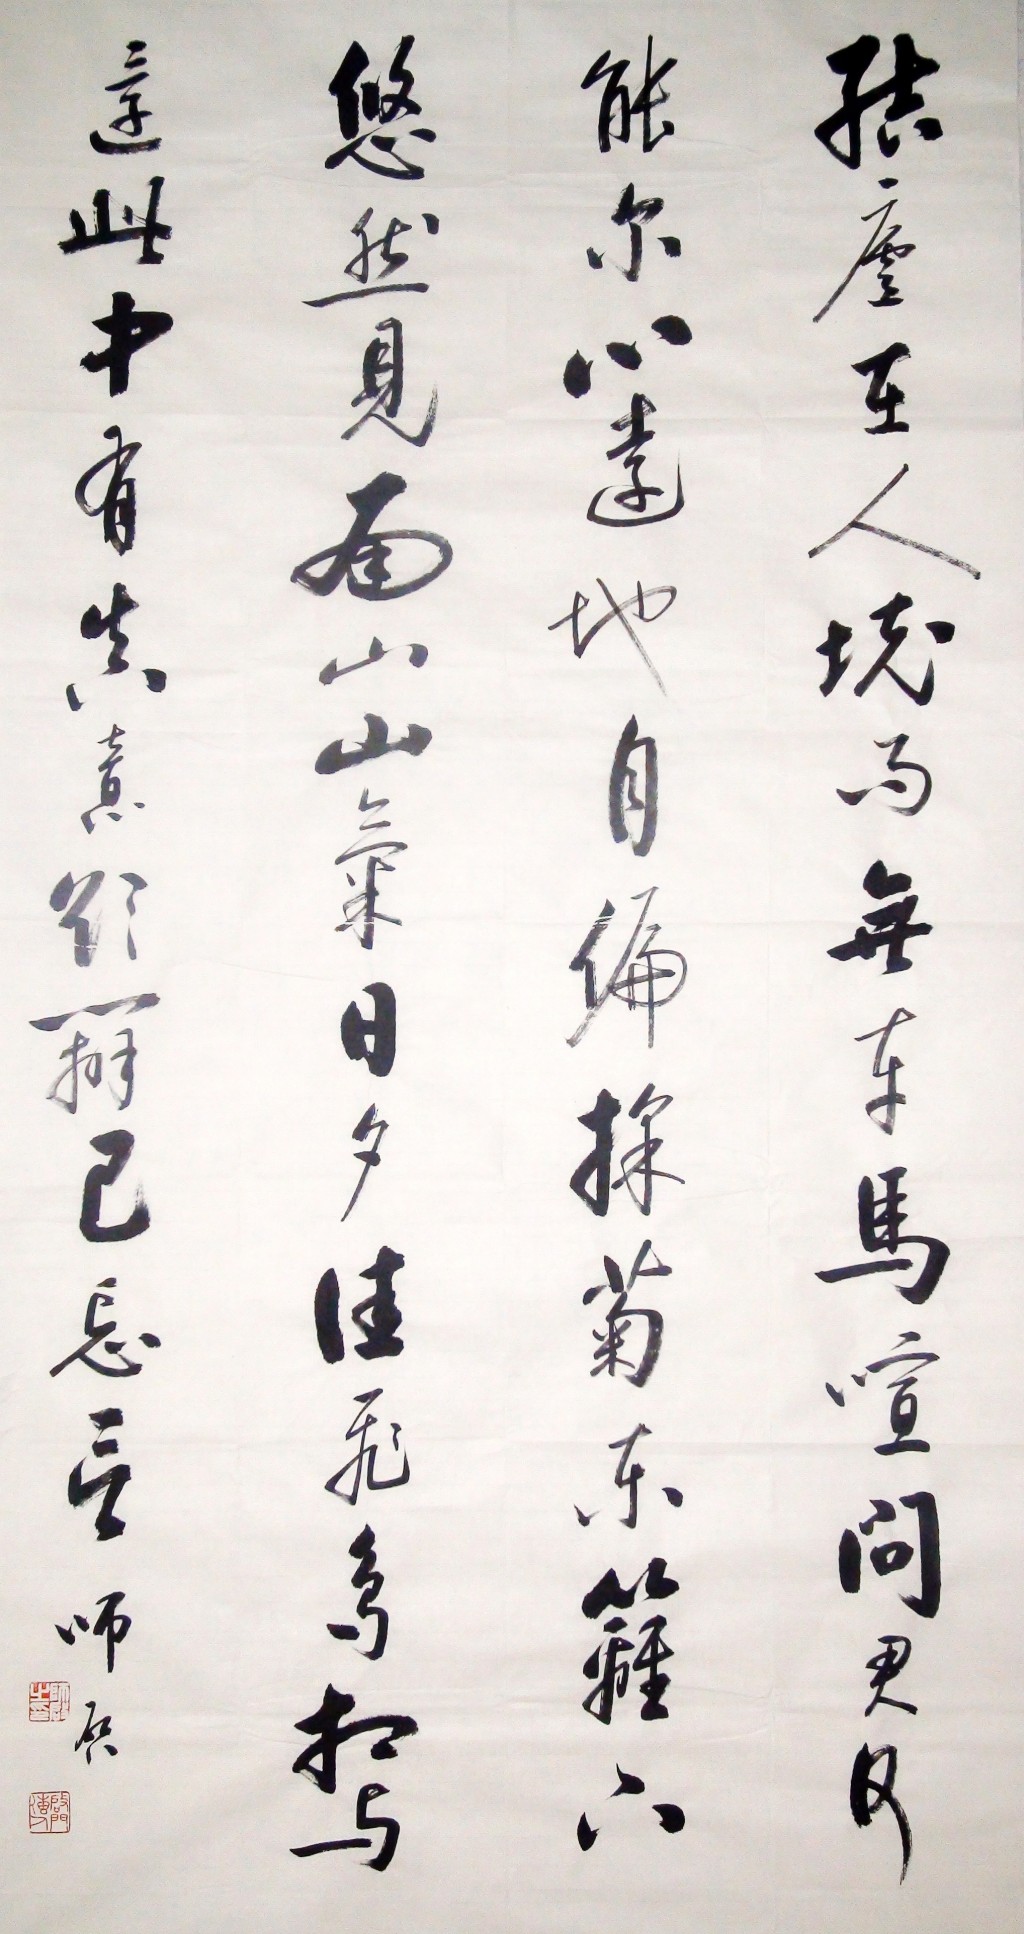 结廬在人境而無车馬喧问君何
能尔心遠地自偏採菊东籬下
悠然見南山山氣日夕佳飛鳥相与
還此中有真意欲辯已忘言 师启